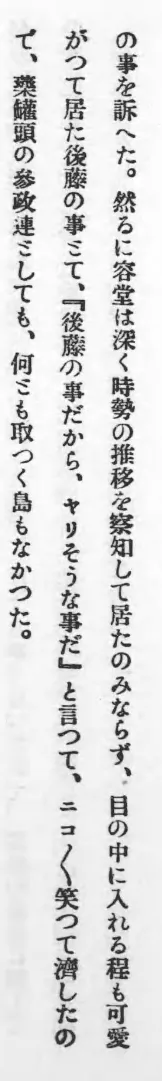 の事を訴へた。然るに容堂は深く時勢の推移を察知して居たのみならず、目の中に入れる程も可愛
がつて居た後藤の事とて、『後藤の事だから、ヤリそうな事だ』と言つて、ニコ〱笑つて濟したの
で、藥罐頭の參政連としても、何とも取つく島もなかつた。